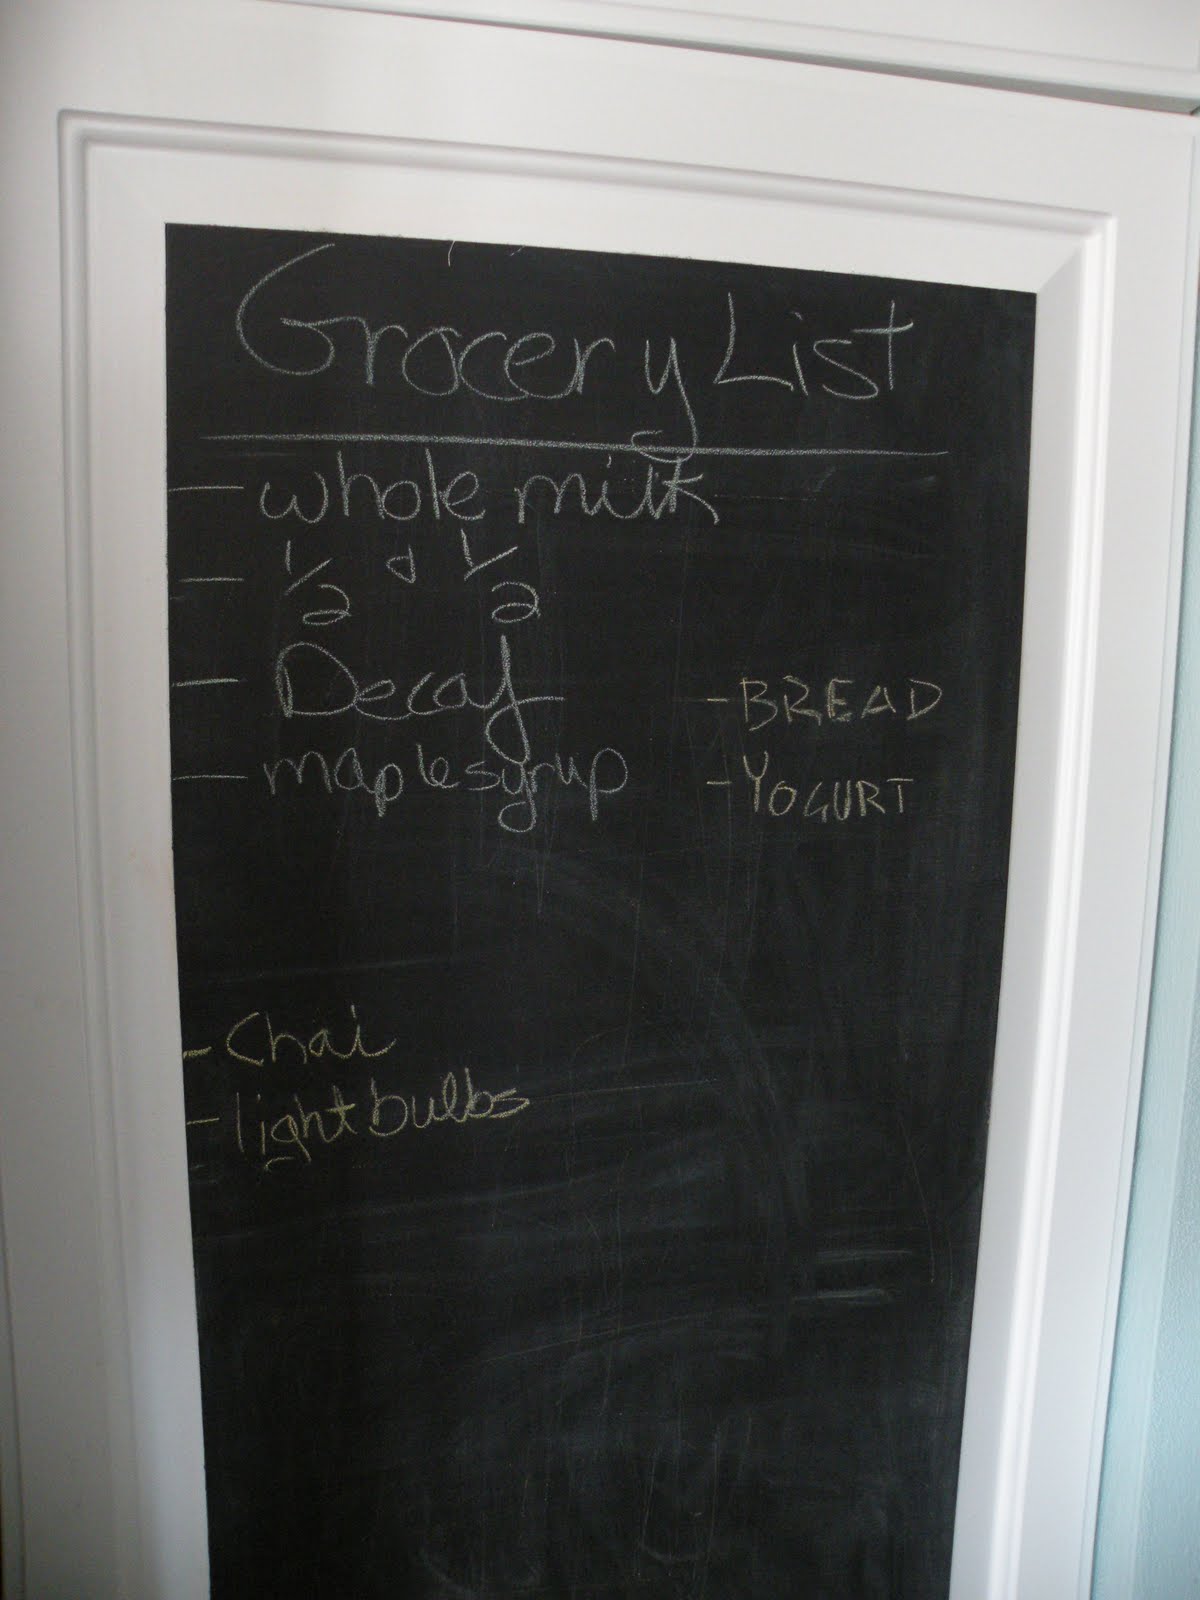 Grocery List
- whole milk
- 1/2 & 1/2
- Decaf
- maple syrup
- BREAD
- YOGURT
- Chai
- light bulbs